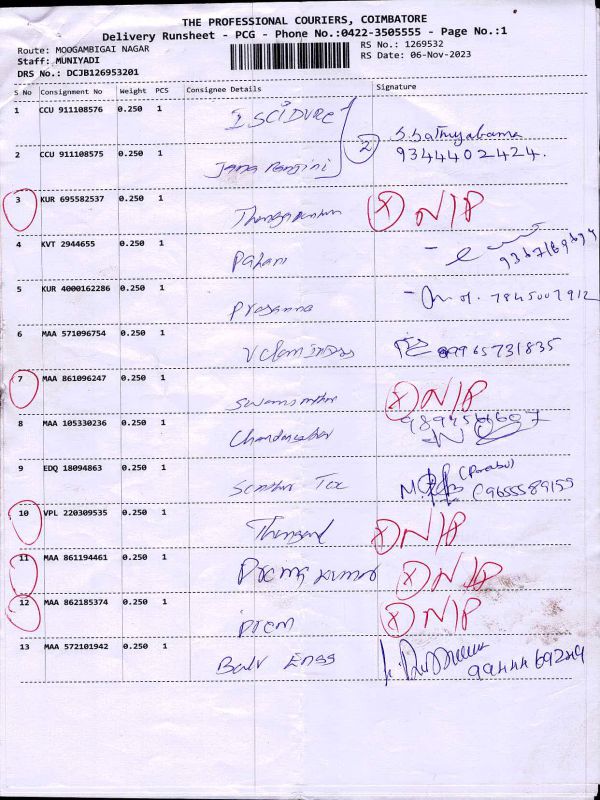 THE PROFESSIONAL COURIERS, COIMBATORE
Delivery Runsheet - PCG - Phone No.:0422-3505555 - Page No.:1
Route: MOOGAMBIGAI NAGAR
Staff: MUNIYADI
DRS No.: DCJB126953201
RS No.: 1269532
RS Date: 06-Nov-2023
S No Consignment No Weight PCS Consignee Details Signature
1 CCU 911108576 0.250 1
2 CCU 911108575 0.250 1 2 S. Sathyabama 9344402424.
3 KUR 695582537 0.250 1 X N/P
4 KVT 2944655 0.250 1 Palani
5 KUR 4000162286 0.250 1 Prasanna 7845007912
6 MAA 571096754 0.250 1 9965731835
7 MAA 861096247 0.250 1 X N/P
8 MAA 105330236 0.250 1
9 EDQ 18094863 0.250 1 Senthur Tex 9655589159
10 VPL 220309535 0.250 1 X N/P
11 MAA 861194461 0.250 1 Prem Kumar X N/P
12 MAA 862185374 0.250 1 Prem X N/P
13 MAA 572101942 0.250 1